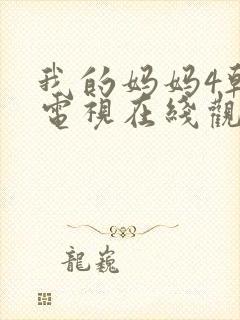 我的妈妈4韩
電視在綫觀
龍巍